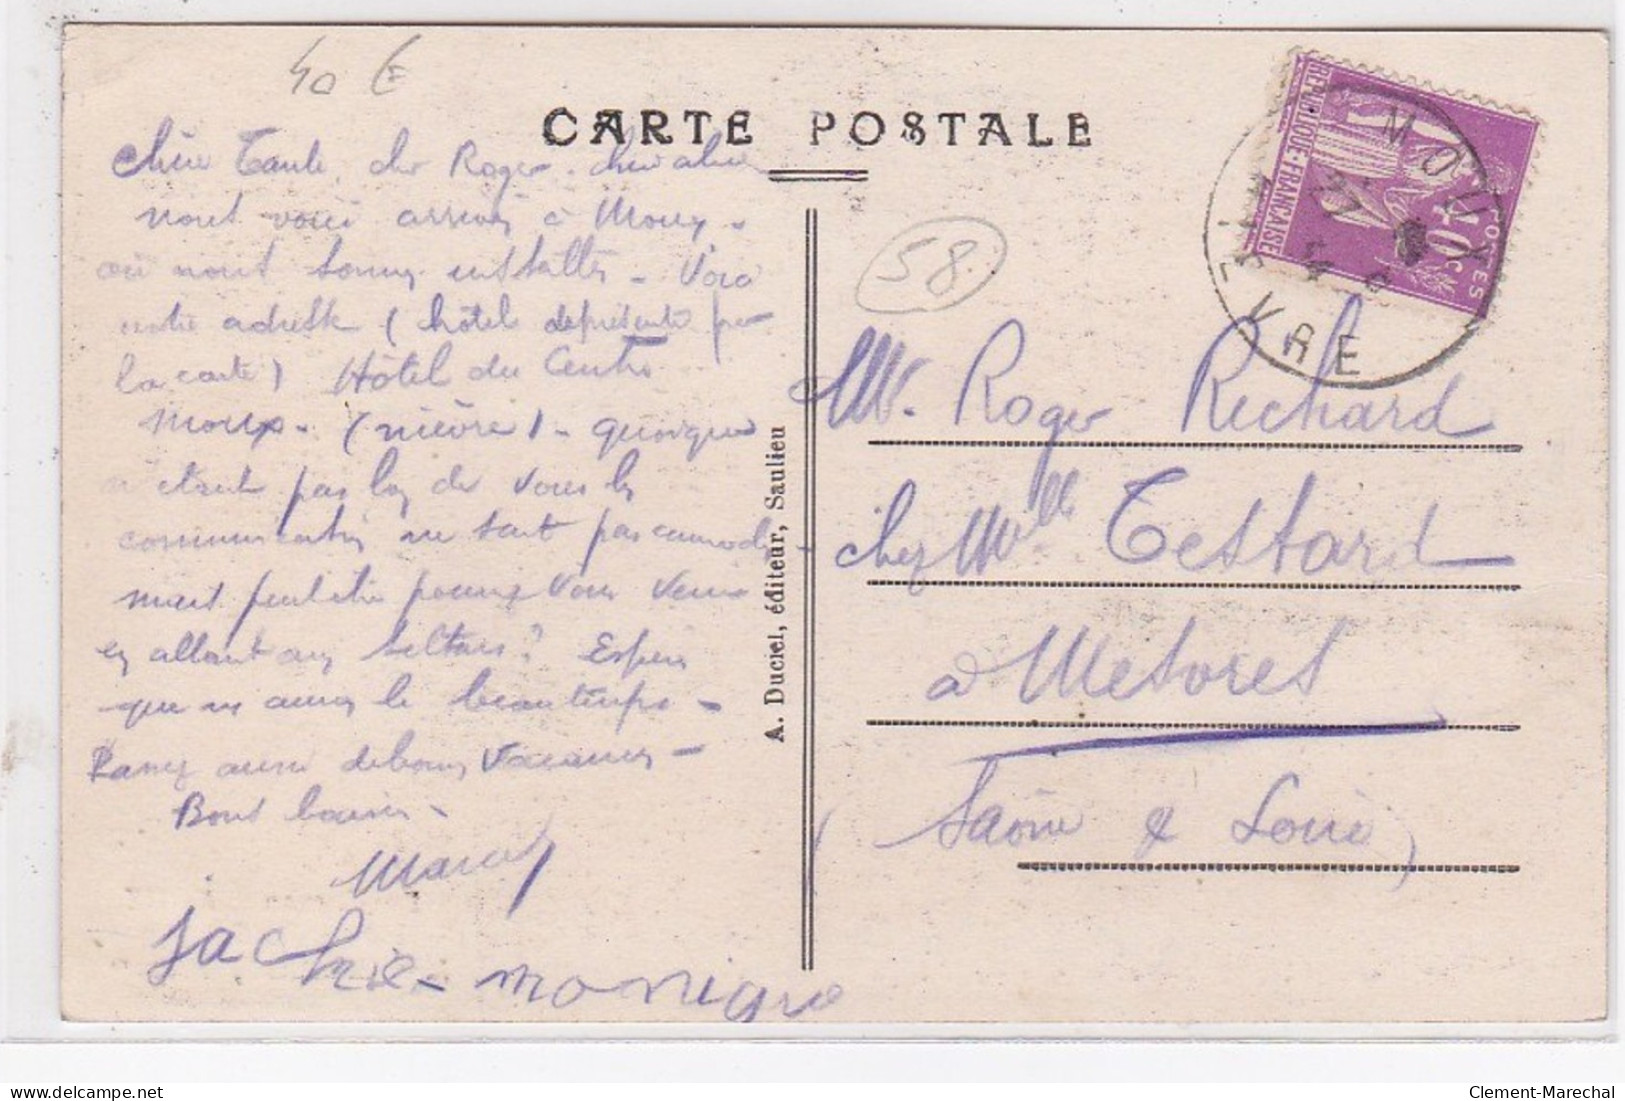 40 €
CARTE POSTALE
chère Tante, cher Roger
nous voici arrivés à Moux -
où nous sommes installés - Voici
notre adresse (hôtel représenté par
la carte) Hôtel du Centre
Moux - (nièvre) - quoique
n'étant pas loin de vous les
communications ne sont pas commodes -
mais peut être pourrez vous venir
en allant aux Settons? Espérons
que nous aurons le beau temps -
Passez aussi de bonnes vacances -
Bons baisers -
Marcel
Jackie - monique
A. Duciel, éditeur, Saulieu
58
REPUBLIQUE·FRANÇAISE
POSTES
40c
MOUX
NIEVRE
Mr. Roger Richard
chez Melle Testard
à Mesvres
(Saône & Loire)
Clement-Marechal